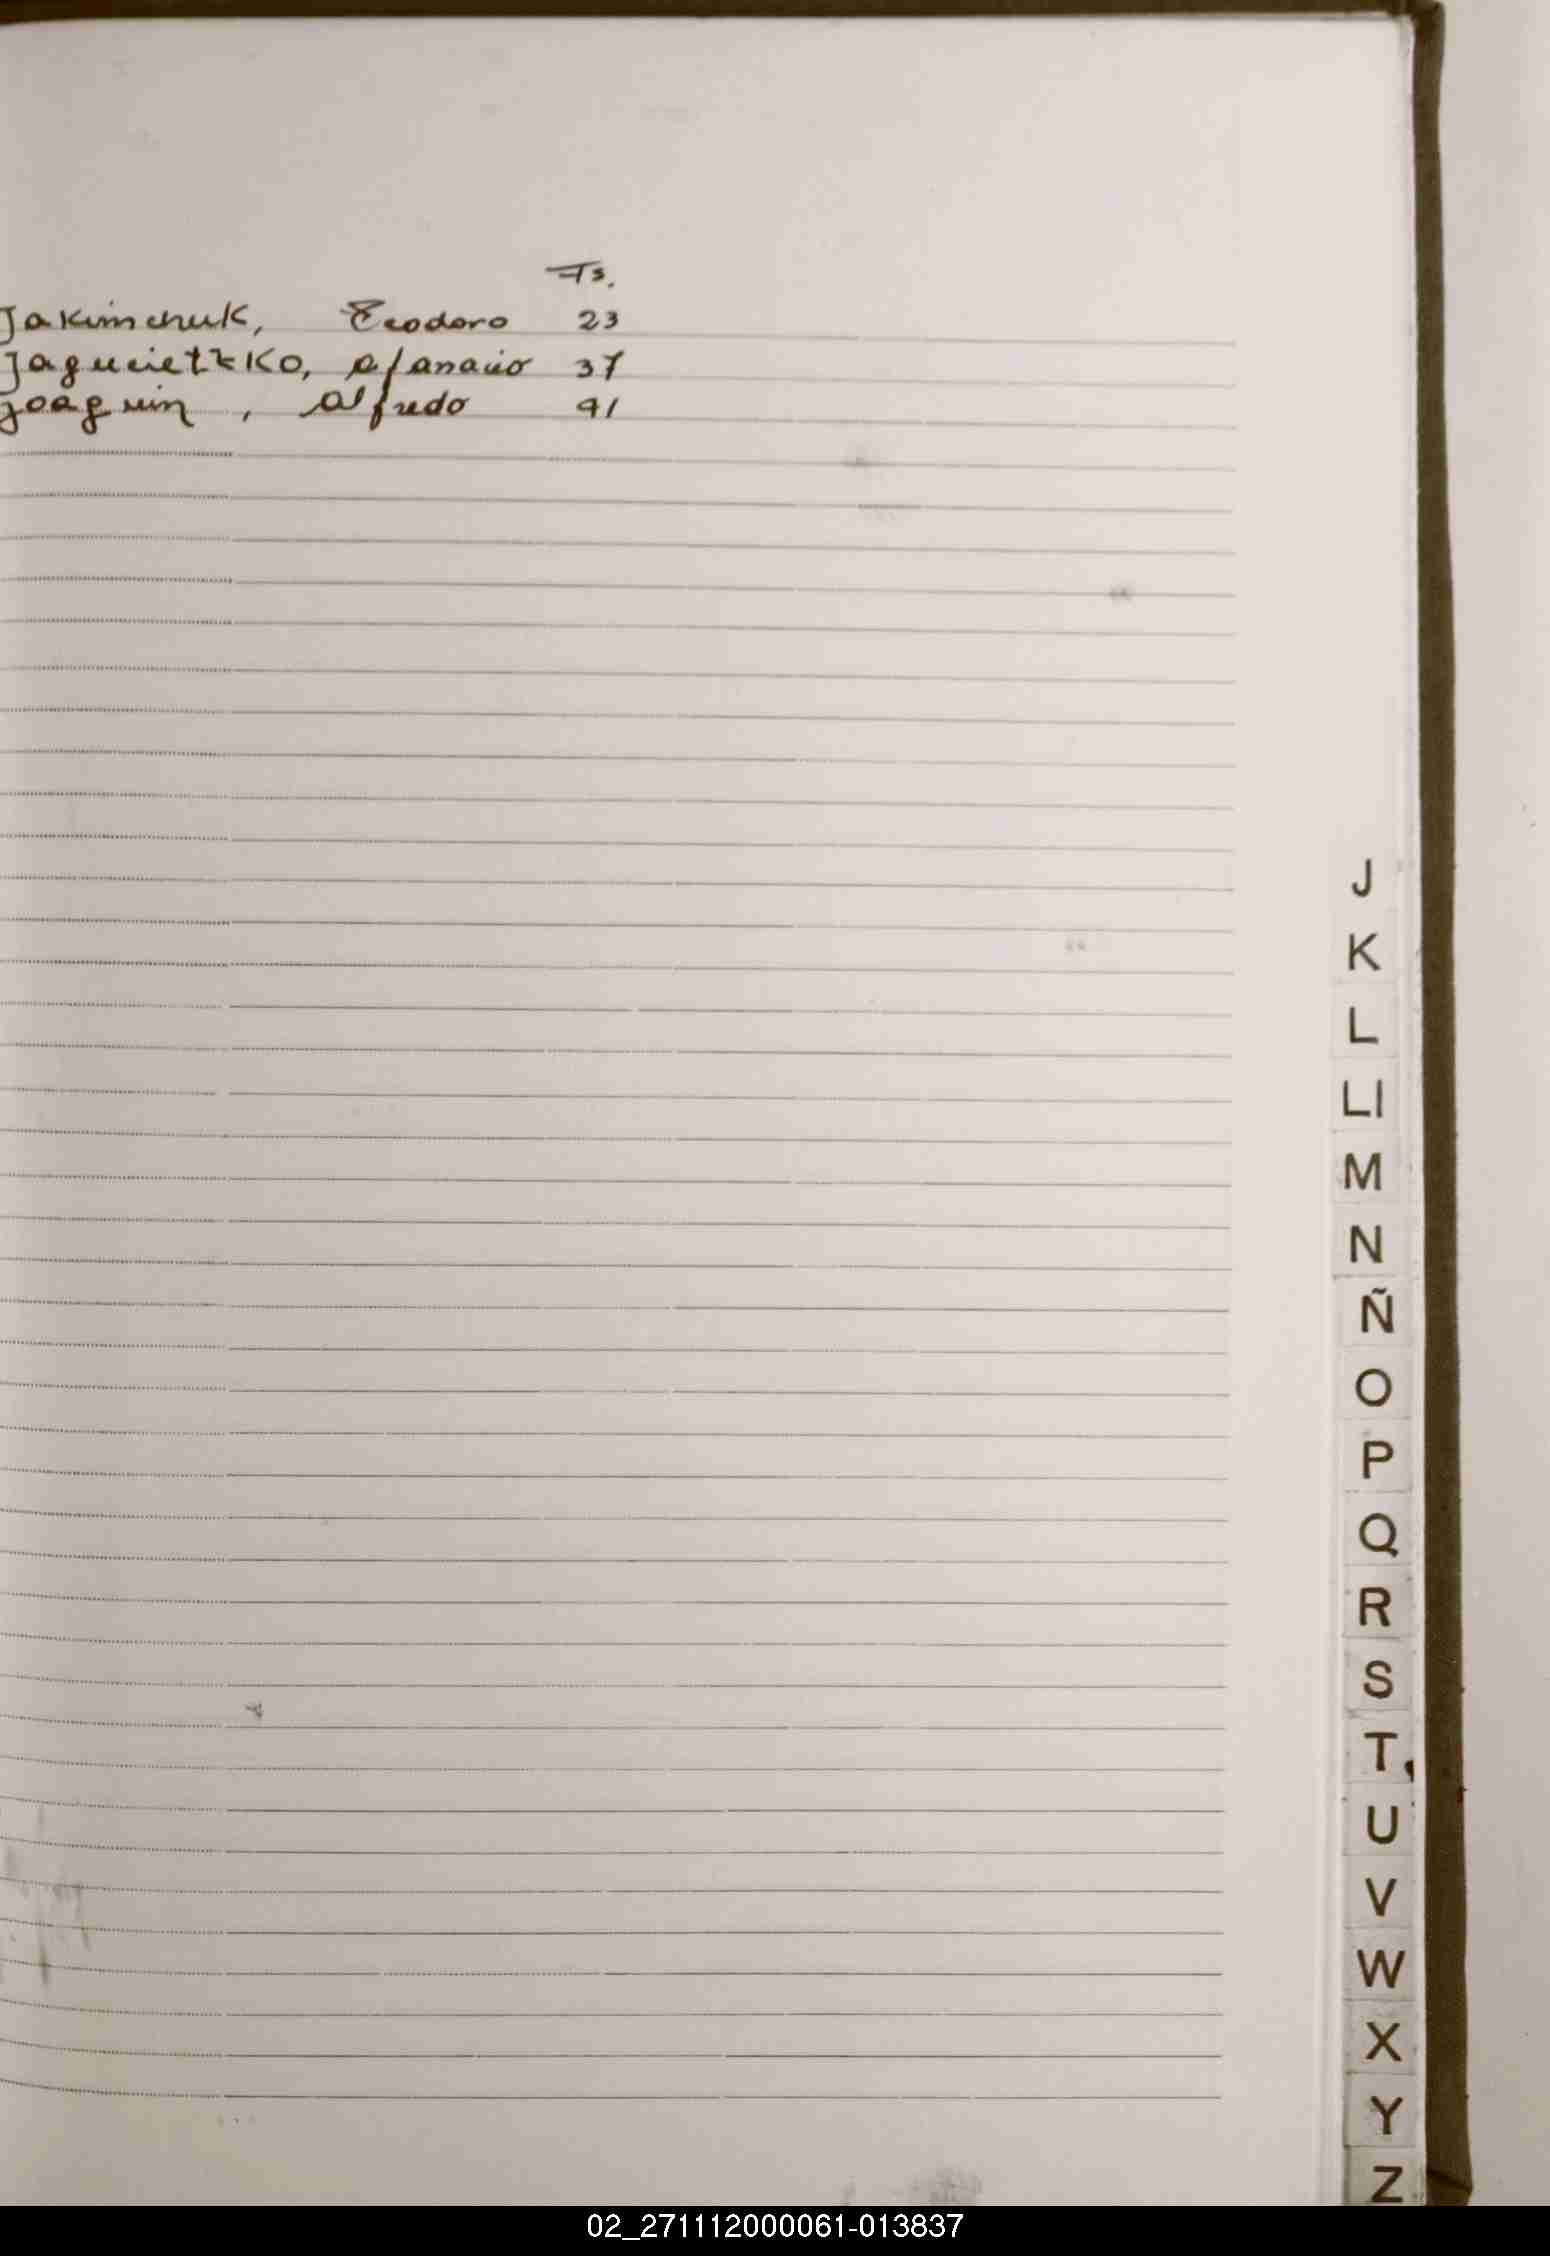 Fs.
Jakimchuk, Teodoro 23
Afanacio 37
Joaquin, Alfredo 91
J
K
L
Ll
M
N
Ñ
O
P
Q
R
S
T
U
V
W
X
Y
Z
02_271112000061-013837